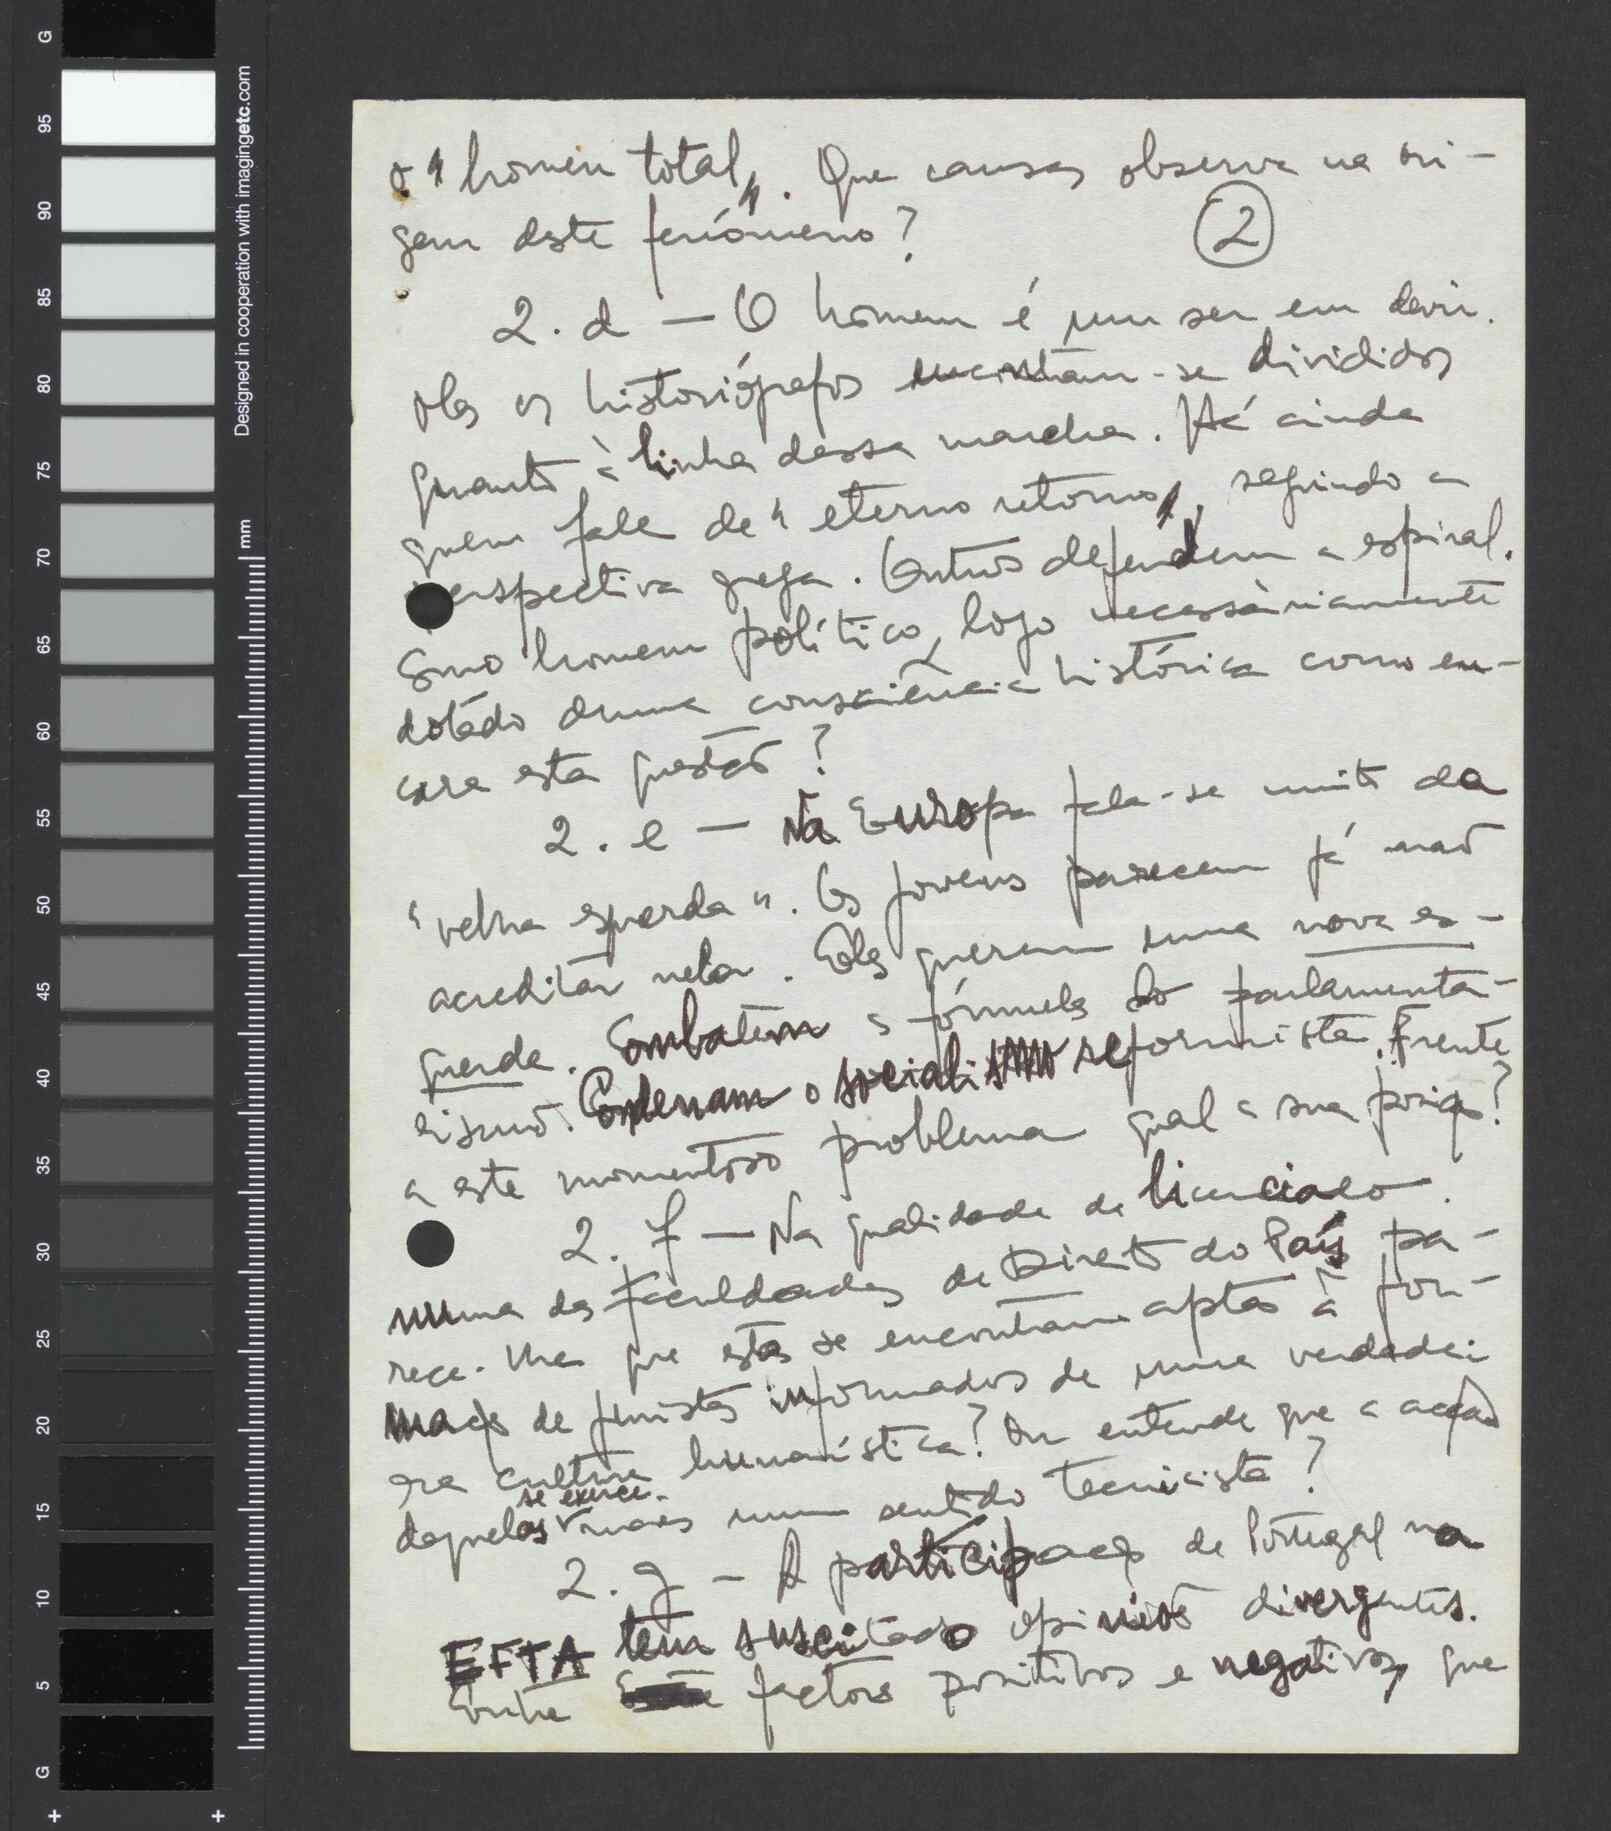 o "homem total". Que causas observa na ori-
gem deste fenómeno?
2
2. d — O homem é um ser em devir.
Mas os historiógrafos encontram-se divididos
quanto à linha dessa marcha. Há ainda
quem fale de "eterno retorno", seguindo a
perspectiva grega. Outros defendem a espiral.
Como homem político, logo necessàriamente
dotado duma consciência histórica como en-
cara esta questão?
2. e — Na Europa fala-se muito da
"velha esquerda". Os jovens parecem já não
acreditar nela. Eles querem uma nova es-
querda. Combatem a fórmula do parlamenta-
rismo. Condenam o socialismo reformista. Frente
a este momentoso problema qual a sua posição?
2. f — Na qualidade de licenciado
numa das Faculdades de Direito do País, pa-
rece-lhe que estas se encontram aptas à for-
mação de juristas informados de uma verdadei-
ra cultura humanística? Ou entende que a acção
se exerce
daquelas mais num sentido tecnicista?
2. g — A participação de Portugal na
EFTA tem suscitado opiniões divergentes.
Entre factores positivos e negativos, que
G
95
90
85
80
75
70
65
60
55
50
45
40
35
30
25
20
15
10
5
G
Designed in cooperation with imagingetc.com
mm